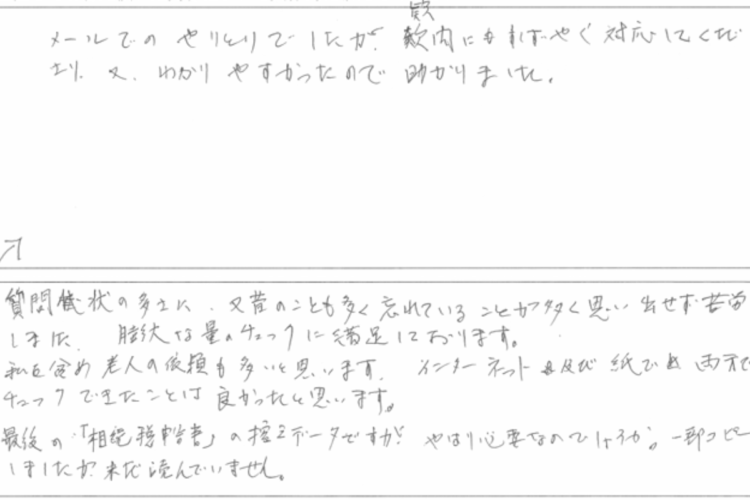 メールでのやりとりでしたが、質問にもすばやく対応してくだ
さり、又、わかりやすかったので助かりました。
質問 状の多さに、又昔のことも多く忘れていることが多く思い出せず苦労
しました。膨大な量のチェックに満足しております。
私を含め老人の依頼も多いと思います。インターネット 及び紙でも両方で
チェックできたことは良かったと思います。
最後の「相続税申告書」の控えデータですが、やはり必要なのでしょうか。一部コピー
しましたが未だ読んでいません。